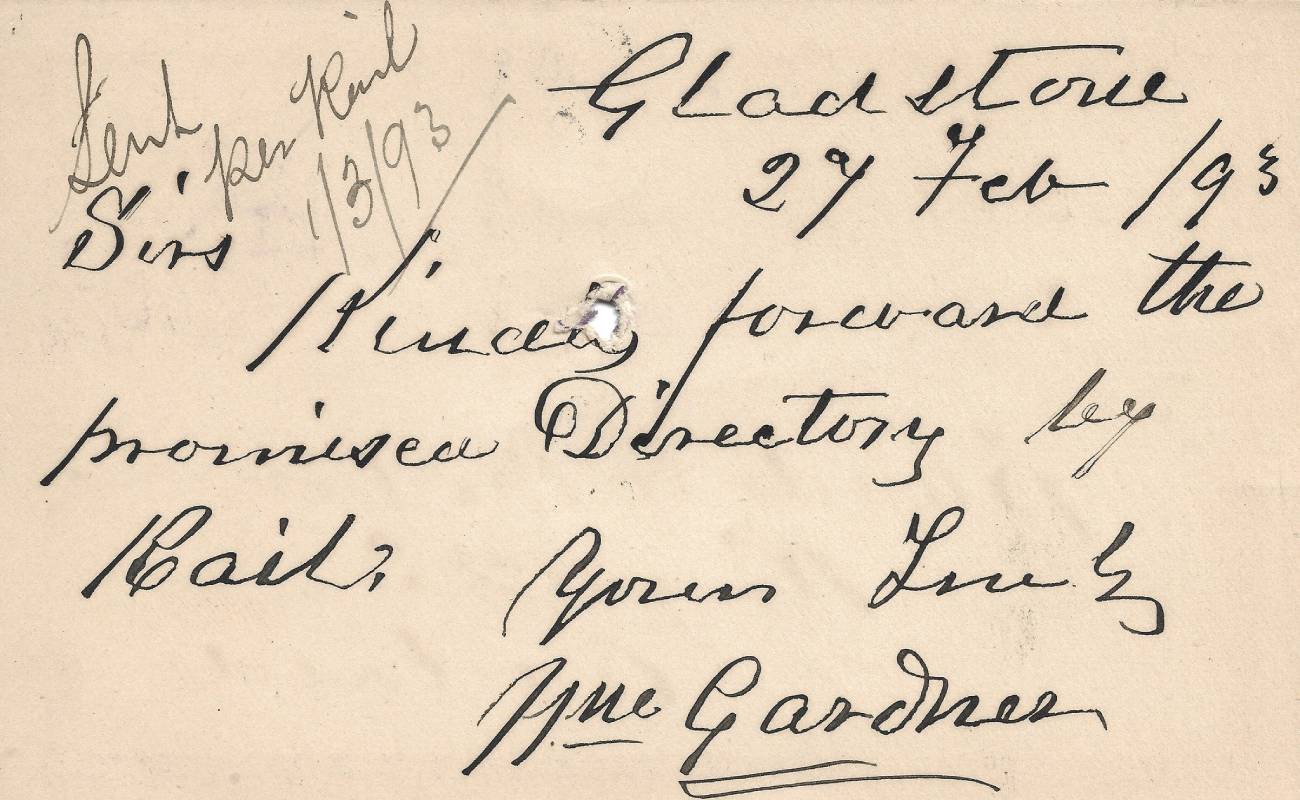 Sent
per Rail
1/3/93
Gladstone
27 Feb /93
Sirs
Kindly forward the
promised Directory by
Rail.
Yours Truly
Wm Gardner